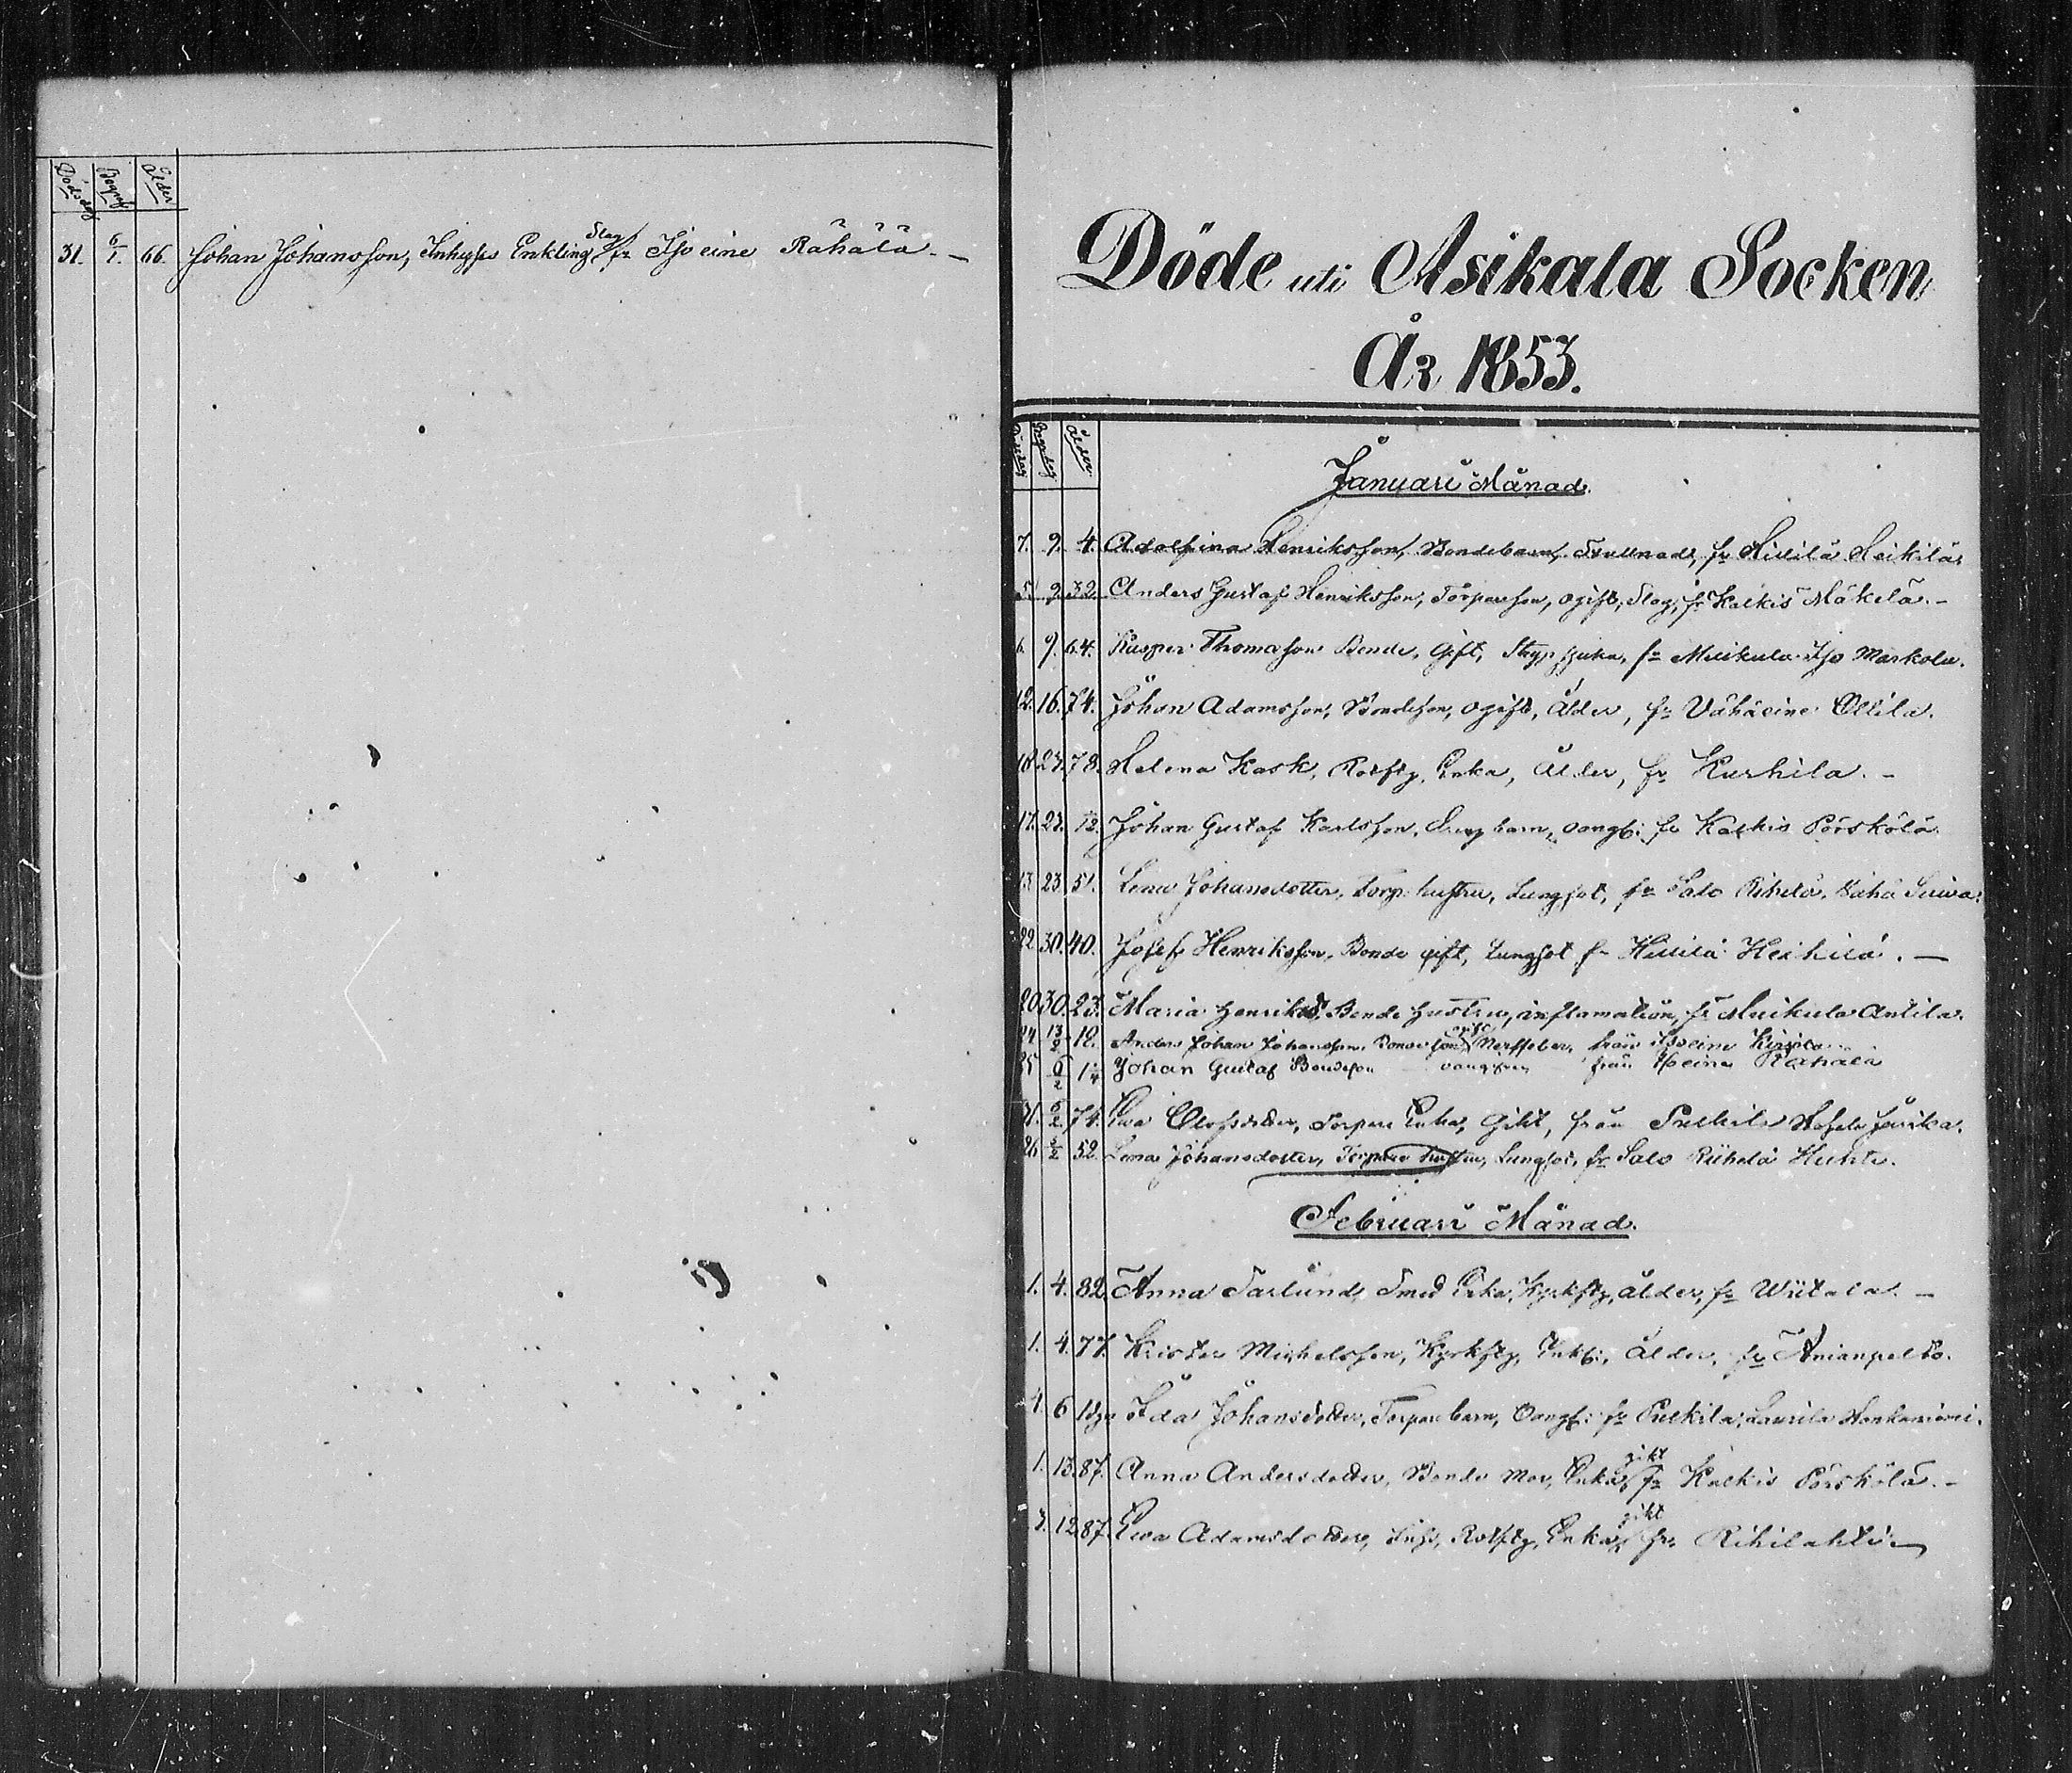 Dödsdag Begraf Ålder
31. 6/1. 66. Johan Johansson, Inhyses Enkling, Slag, fr Iso eine Rähälä. -
Döde uti Asikala Socken
År 1853.
Dödsdag Begrdag Ålder
Januari Månad.
7. 9. 4. Adolfina Henriksson, Bondebarn, fr Hillilä Heikilä
5. 9. 32. Anders Gustaf Henriksson, Torpareson, ogift, Slag, fr Kalkis Mäkelä. -
6. 9. 64. Kasper Thomasson Bonde, Gift, fr Muikula Iso Markola.
12. 16. 74. Johan Adamsson, Bondeson, ogift, Ålder, fr Vähäeine Ollila.
18. 23. 78. Helena Kask, Rotftg, Enka, Ålder, fr Kurhila. -
17. 23. Johan Gustaf Karlsson, barn, oangf: fr Kalkis Pörskölä.
13. 23. 51. Lena Johansdotter, Torp. hustru, Lungsot, fr Salo Rihelä,
22. 30. 40. Josef Henriksson, Bonde gift, Lungsot fr Hillilä Heikilä. -
20. 30. 23. Maria Henriksd. Bonde hustru, inflamation, fr Muikula Antila.
24 13/2 12. Anders Johan Johansson, Bondeson, ogift Nerffeber, från Isoeine
25 6/2 1/4 Johan Gustaf Bondeson oangifven från Isoeine Rähälä
31. 6/2 74. Eva Olofsdotter, Torpare Enka, Gikt, från Pulkila
26 52. Lena Johansdotter, Torpare hustru, Lungsot, fr Salo Riihelä Huhti.
Februari Månad.
1. 4. 82. Anna Tarlund, Smed Enka, Kyrkftg, ålder, fr Wiitala. -
1. 4. 77. Krister Michelsson, Kyrkftg, Enkl:, Ålder, fr Anianpelto.
4. 6 Ida Johansdotter, Torpare barn, Oangf: fr Pulkila, Laurila
1. 13. 87. Anna Andersdotter, Bonde Mor, Enka, gikt fr Kalkis Pörskölä. -
3. 12 87. Eva Adamsdotter, Inhs, Rotftg, Enka, gikt fr. Rihilahti. -